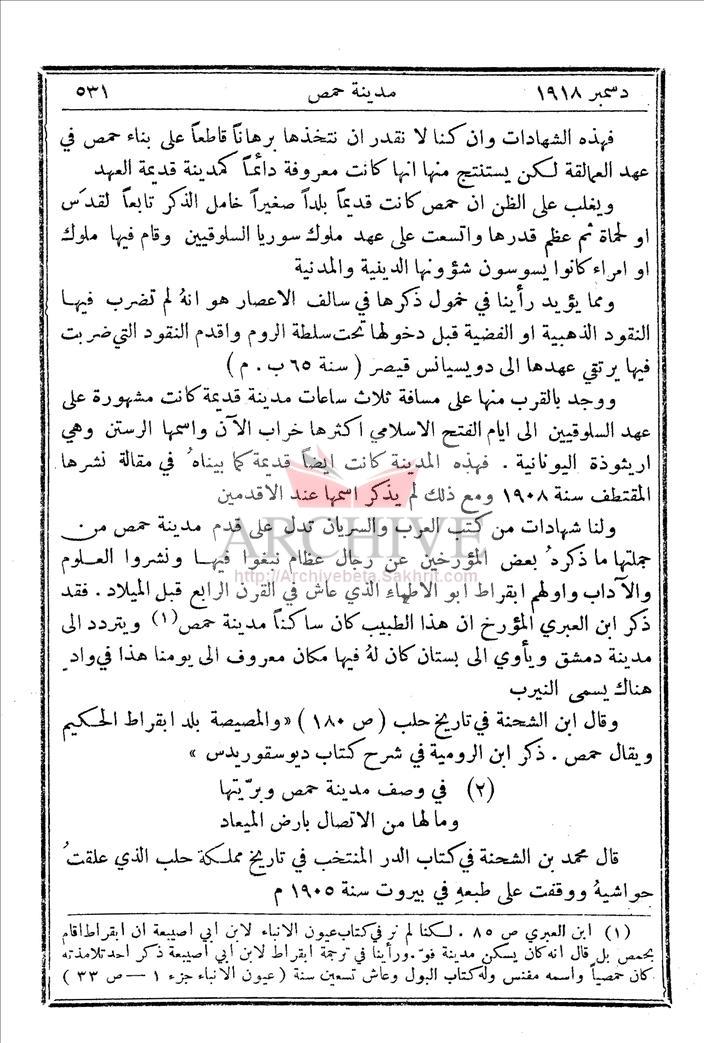 دسمبر ١٩١٨ مدينة حمص ٥٣١
فهذه الشهادات وان كنا لا نقدر ان نتخذها برهاناً قاطعاً على بناء حمص في
عهد العمالقة لكن يستنتج منها انها كانت معروفة دائماً كمدينة قديمة العهد
ويغلب على الظن ان حمص كانت قديماً بلداً صغيراً خامل الذكر تابعاً لقدَس
او لحماة ثم عظم قدرها واتسعت على عهد ملوك سوريا السلوقيين وقام فيها ملوك
او امراء كانوا يسوسون شؤونها الدينية والمدنية
ومما يؤيد رأينا في خمول ذكرها في سالف الاعصار هو انهُ لم تضرب فيها
النقود الذهبية او الفضية قبل دخولها تحت سلطة الروم واقدم النقود التي ضربت
فيها يرتقي عهدها الى دويسيانس قيصر ( سنة ٦٥ ب . م )
ووجد بالقرب منها على مسافة ثلاث ساعات مدينة قديمة كانت مشهورة على
عهد السلوقيين الى ايام الفتح الاسلامي اكثرها خراب الآن واسمها الرستن وهي
اريثوذة اليونانية . فهذه المدينة كانت ايضاً قديمة كما بيناهُ في مقالة نشرها
المقتطف سنة ١٩٠٨ ومع ذلك لم يذكر اسمها عند الاقدمين
ولنا شهادات من كتب العرب والسريان تدل على قدم مدينة حمص من
جملتها ما ذكرهُ بعض المؤرخين عن رجال عظام نبغوا فيها ونشروا العلوم
والآداب واولهم ابقراط ابو الاطباء الذي عاش في القرن الرابع قبل الميلاد . فقد
ذكر ابن العبري المؤرخ ان هذا الطبيب كان ساكناً مدينة حمص(١) ويتردد الى
مدينة دمشق ويأوي الى بستان كان لهُ فيها مكان معروف الى يومنا هذا في وادٍ
هناك يسمى النيرب
وقال ابن الشحنة في تاريخ حلب ( ص ١٨٠ ) «والمصيصة بلد ابقراط الحكيم
ويقال حمص . ذكر ابن الرومية في شرح كتاب ديوسقوريدس »
(٢) في وصف مدينة حمص وبرّيتها
وما لها من الاتصال بارض الميعاد
قال محمد بن الشحنة في كتاب الدر المنتخب في تاريخ مملكة حلب الذي علقتُ
حواشيهُ ووقفت على طبعهِ في بيروت سنة ١٩٠٥ م
(١) ابن العبري ص ٨٥ . لكنا لم نرَ في كتاب عيون الانباء لابن ابي اصيبعة ان ابقراط اقام
بحمص بل قال انه كان يسكن مدينة فوّ . ورأينا في ترجمة ابقراط لابن ابي اصيبعة ذكر احد تلامذته
كان حمصياً واسمه مفنس وله كتاب البول وعاش تسعين سنة ( عيون الانباء جزء ١ — ص ٣٣ )
ARCHIVE
http://Archivebeta.Sakhrit.com